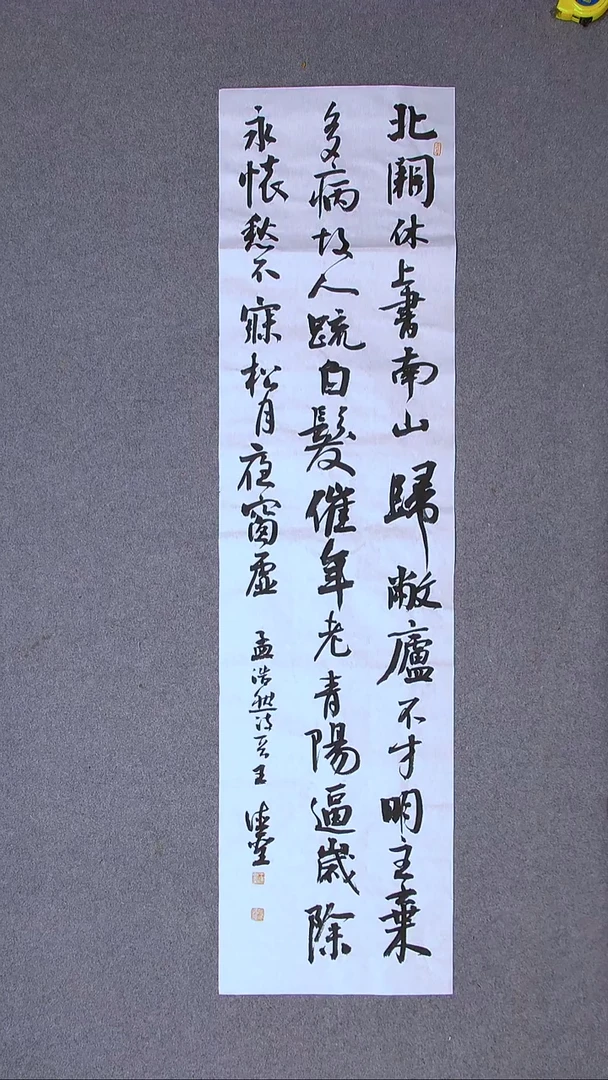 北闕休上書南山歸敝廬不才明主棄
多病故人疏白髮催年老青陽逼歲除
永懷愁不寐松月夜窗虛
孟浩然诗